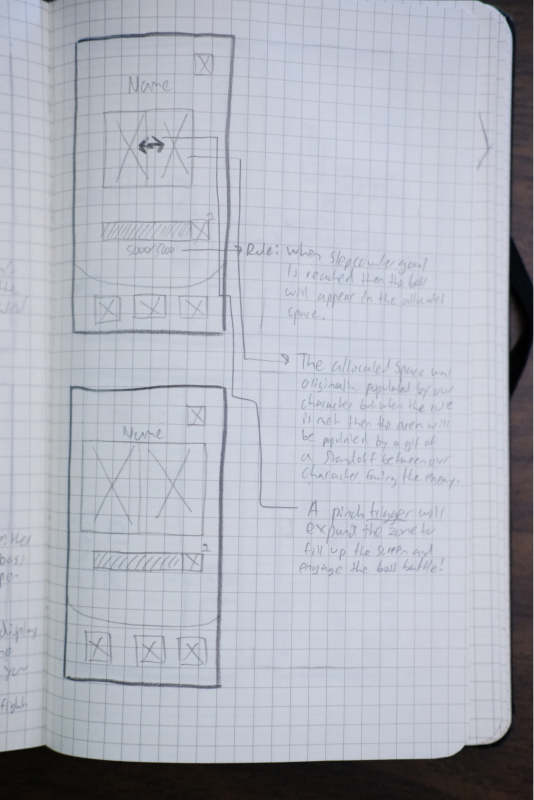 Name
5000/5000
Rule: When Stepcounter goal
is reached then the boss
will appear in the allocated
space.
The allocated space was
originally populated by our
character but when the rule
is met then the area will
be populated by a gif of
a standoff between our
character facing the enemy.
A pinch trigger will
expand the zone to
fill up the screen and
engage the boss battle!
Name
display
fight